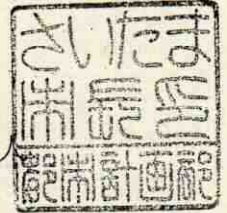 さいたま
市長印
都市計画部